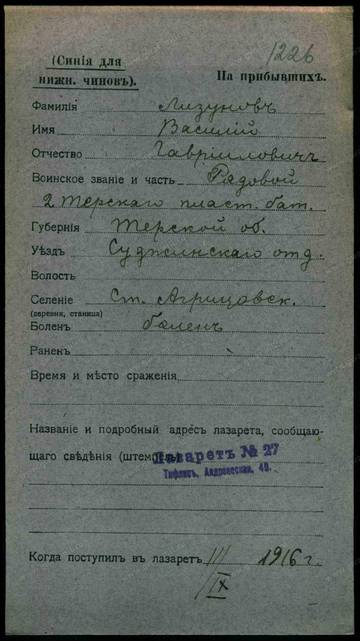 1226
(Синія для
нижн. чиновъ).
На прибывшихъ.
Фамилія Лизуновъ
Имя Василій
Отчество Гавріиловичъ
Воинское званіе и часть Рядовой
2 Терскаго пласт. бат.
Губернія Терской об.
Уѣздъ Сунженскаго отд.
Волость
Селеніе Ст.
(деревня, станица)
Боленъ боленъ
Раненъ
Время и мѣсто сраженія
Названіе и подробный адресъ лазарета, сообщаю-
щаго свѣдѣнія (штемпель)
Лазаретъ № 27
Тифлисъ, Андреевская, 49.
Когда поступилъ въ лазаретъ III/IX 1916 г.